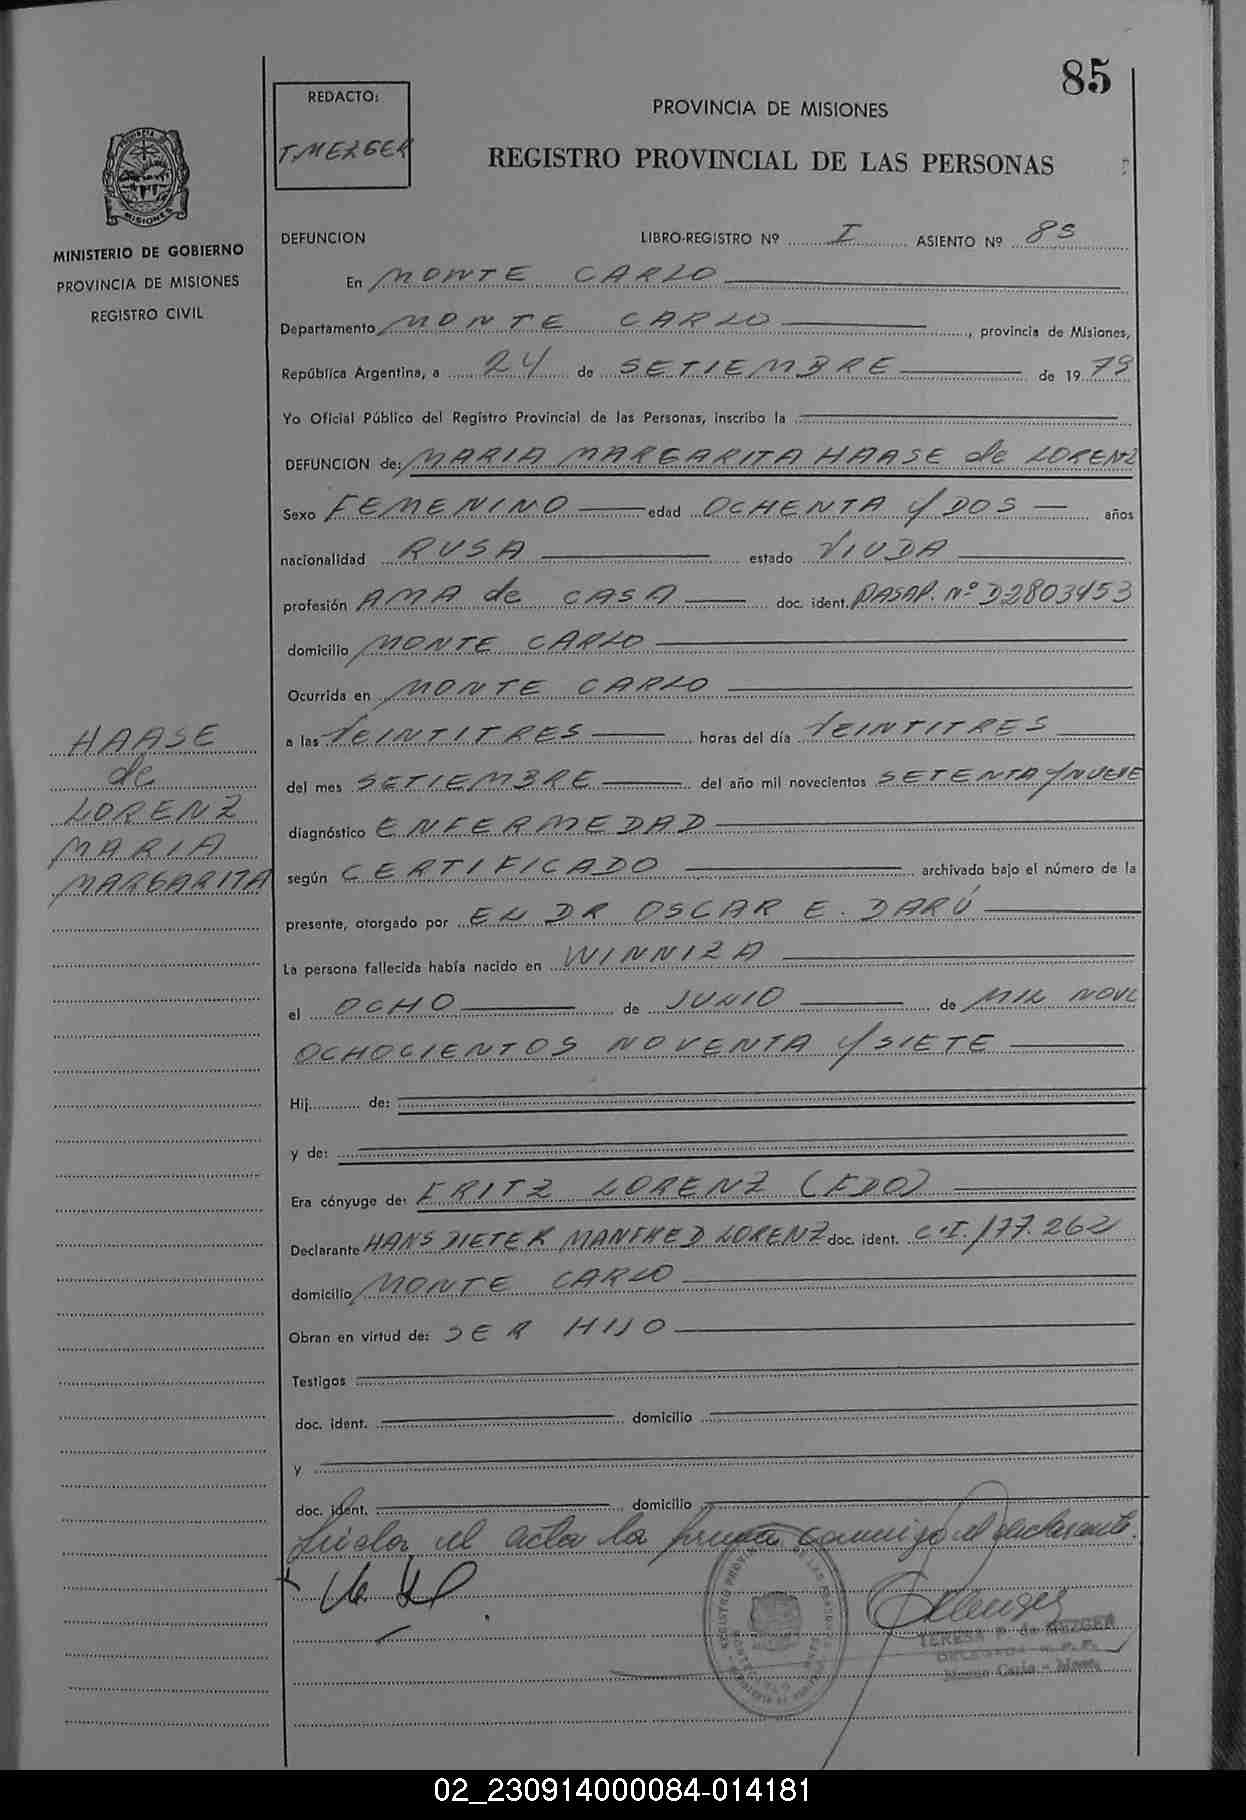 85
REDACTO:
T. MEZGER
PROVINCIA DE MISIONES
REGISTRO PROVINCIAL DE LAS PERSONAS
PROVINCIA DE
MISIONES
MINISTERIO DE GOBIERNO
PROVINCIA DE MISIONES
REGISTRO CIVIL
DEFUNCION LIBRO-REGISTRO Nº I ASIENTO Nº 85
En MONTE CARLO
Departamento MONTE CARLO, provincia de Misiones,
República Argentina, a 24 de SETIEMBRE de 19 79
Yo Oficial Público del Registro Provincial de las Personas, inscribo la
DEFUNCION de: MARIA MARGARITA HAASE de LORENZ
Sexo FEMENINO edad OCHENTA y DOS años
nacionalidad RUSA estado VIUDA
profesión AMA de CASA doc. ident. PASAP. Nº D2803453
domicilio MONTE CARLO
Ocurrida en MONTE CARLO
a las VEINTITRES horas del día VEINTITRES
del mes SETIEMBRE del año mil novecientos SETENTA y NUEVE
diagnóstico ENFERMEDAD
según CERTIFICADO archivado bajo el número de la
presente, otorgado por EL DR OSCAR E. DARÚ
La persona fallecida había nacido en WINNIZA
el OCHO de JUNIO de MIL NOVE
OCHOCIENTOS NOVENTA y SIETE
Hij de:
y de:
Era cónyuge de: FRITZ LORENZ (FDO)
Declarante HANS DIETER MANFRED LORENZ doc. ident. C.I. 177.262
domicilio MONTE CARLO
Obran en virtud de: SER HIJO
Testigos
doc. ident. domicilio
y
doc. ident. domicilio
Leida el acta la firma conmigo el declarante.
TERESA P. de MEZGER
DELEGADA R. P. P.
Monte Carlo - Mnes.
HAASE
de
LORENZ
MARIA
MARGARITA
02_230914000084-014181